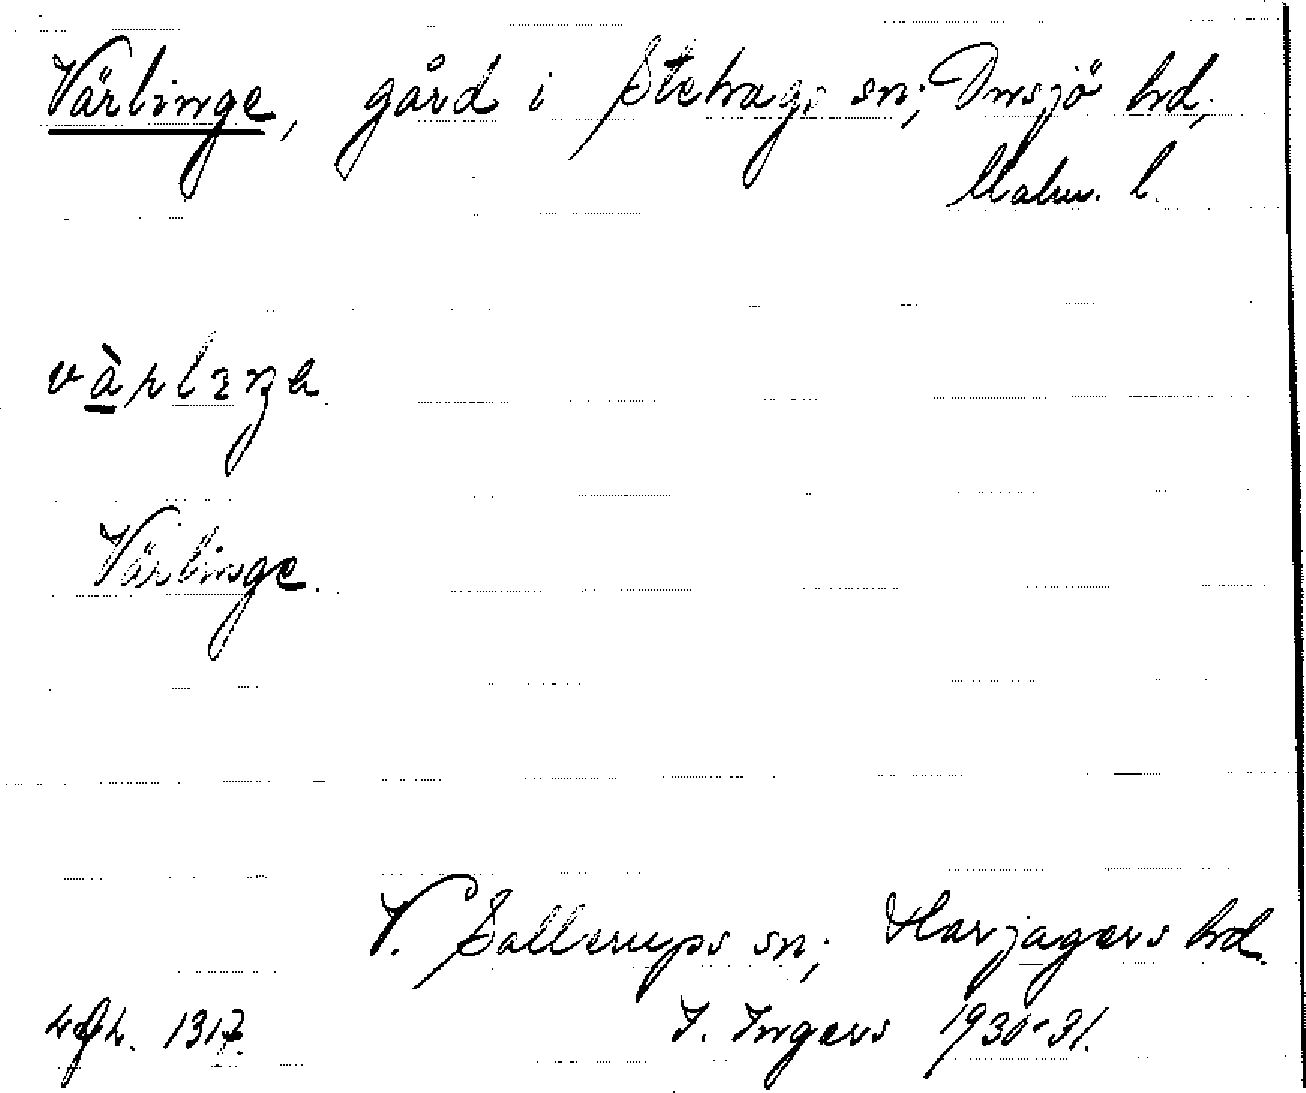 Värlinge, gård i Stehags sn; Onsjö hd;
Malm. l.
Värlinge.
V. Sallerups sn; Harjagers hd.
1317.
I. Ingers 1930-31.